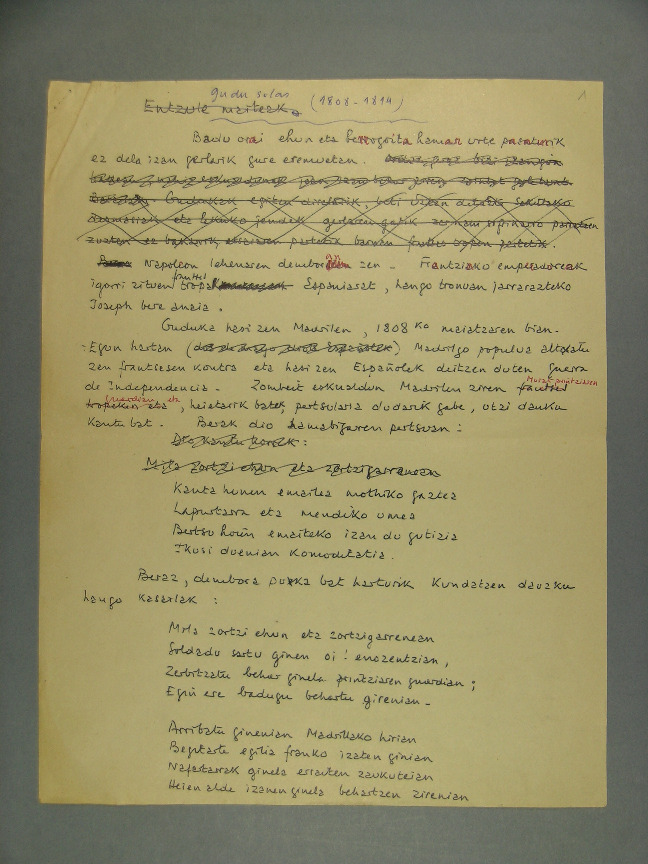 gudu solas (1808-1814) 1
Entzule maiteak,
Badu orai ehun eta berrogoita hamar urte pasaturik
ez dela izan gerlarik gure eremuetan.
Gudukak egiten direlarik, beti izan
eta jendek gerlaren gatik
zuten ez bakarrik partetik bainan partetik.
Bana Napoleon lehenaren demboran zen - Frantziako emperadoreak
igorri zituen frantses tropak Espaniarat, hango tronuan jarrarazteko
Joseph bere anaia.
Guduka hasi zen Madrilen, 1808ko maiatzaren bian-
- Egun hartan (dos de mayo) Madrilgo populua altxatu
zen frantsesen kontra eta hasi zen Españolek deitzen duten guerra
de Independencia - Zombeit eskualdun Madrilen ziren Murat printziaren
guardian, eta heietarik batek, pertsularia dudarik gabe, utzi dauku
kantu bat. Berak dio hamabigaren pertsuan:
Dio kantu horrek:
Mila zortzi ehun eta zortzigarrenean
Kanta hunen emailea mothiko gaztea
Lapurtarra eta mendiko umea
Bertsu hoien emaiteko izan du gutizia
Ikusi duenian komoditatia.
Beraz, dembora puxka bat harturik kundatzen dauzku
hango kasailak:
Mila zortzi ehun eta zortzigarrenean
Soldado sartu ginen oi! enozentzian,
Zerbitzatu behar ginela printziaren guardian;
Egin ere badugu behartu girenian-
Arribatu ginenian Madrillako hirian
Begitarte egilia franko izaten ginian
Nafartarrak ginela erraiten zaukuteian
Heien alde izanen ginela behartzen zirenian